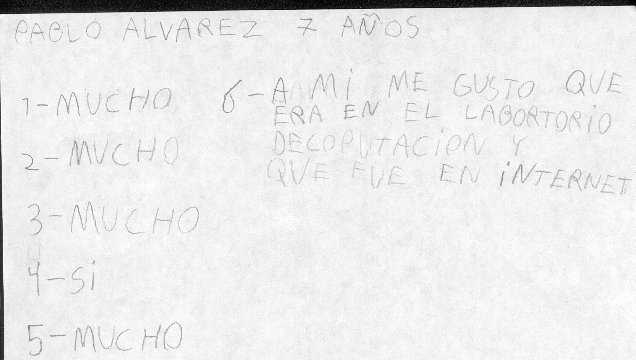 PABLO ALVAREZ 7 AÑOS
1-MUCHO
2-MUCHO
3-MUCHO
4-Si
5-MUCHO
6-A Mi ME GUSTO QUE
ERA EN EL LABORTORiO
DECOPUTACiON Y
QUE FUE EN iNTERNET